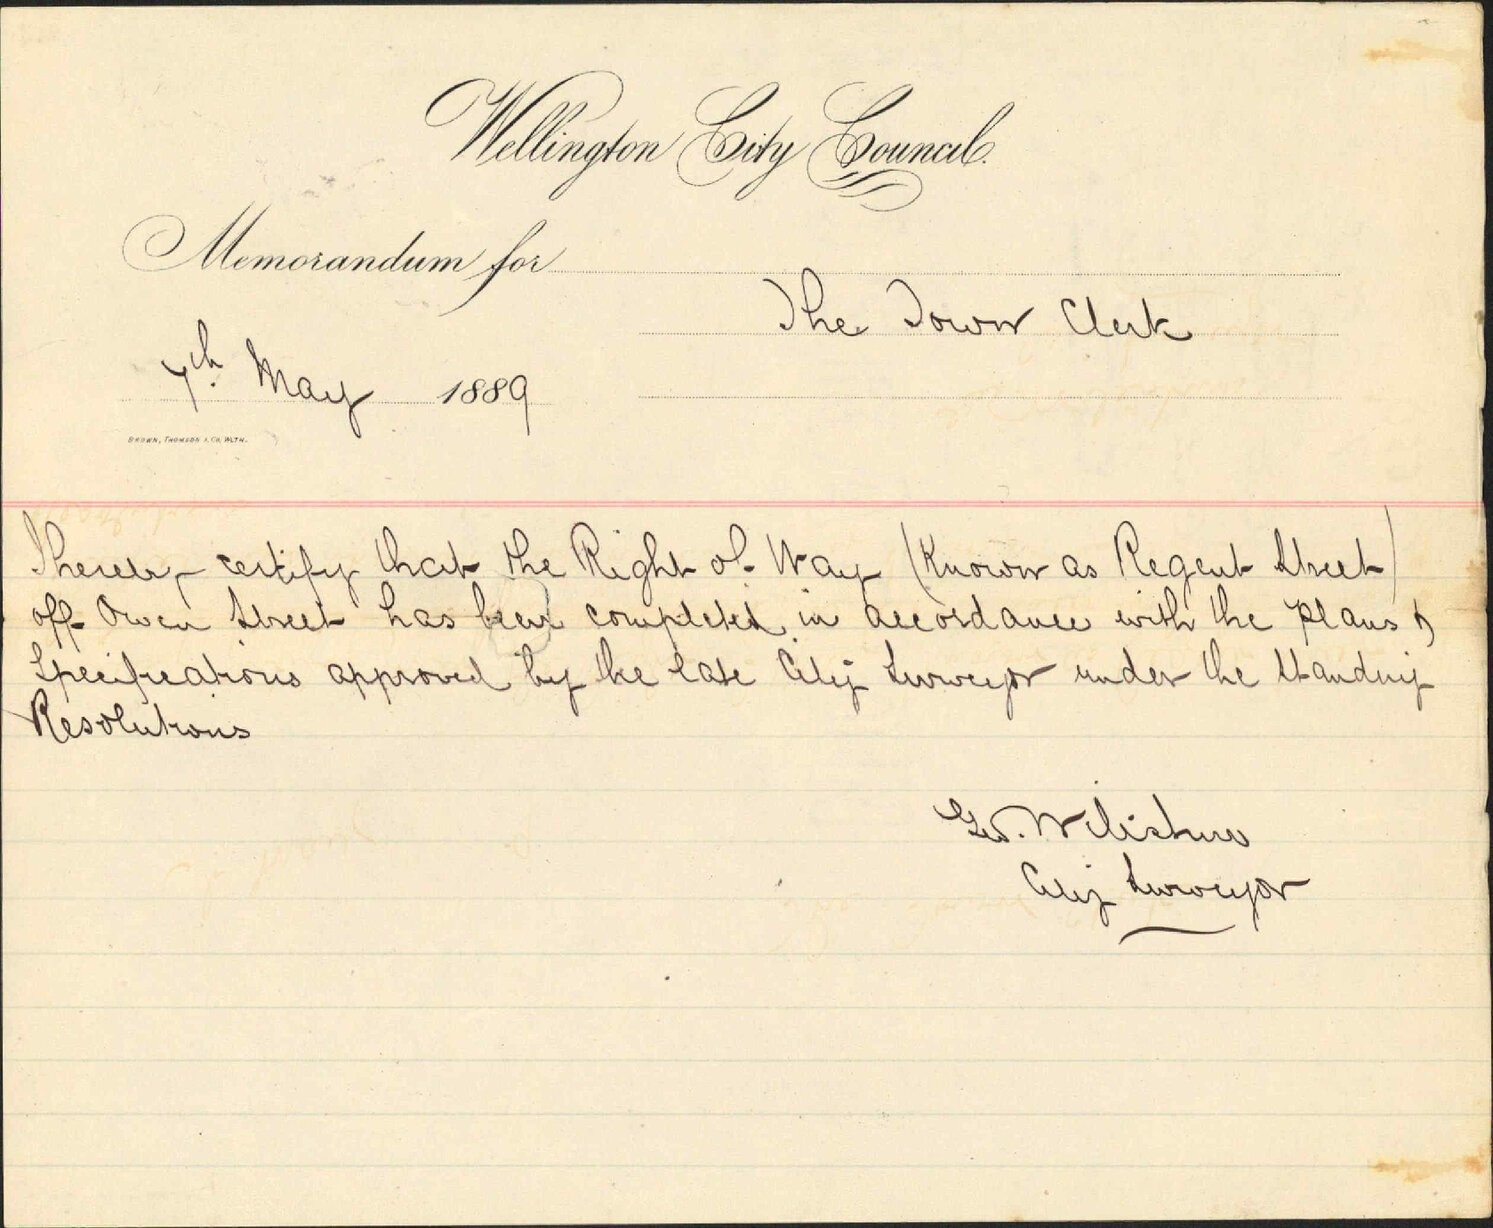 Wellington City Council.
Memorandum for
The Town Clerk
7th May 1889
BROWN, THOMSON & CO. WLTN.
I hereby certify that the Right of Way (Known as Regent Street)
off Owen Street has been completed in accordance with the plans &
Specifications approved by the late City Surveyor under the Standing
Resolutions
Geo. Wiltshire
City Surveyor